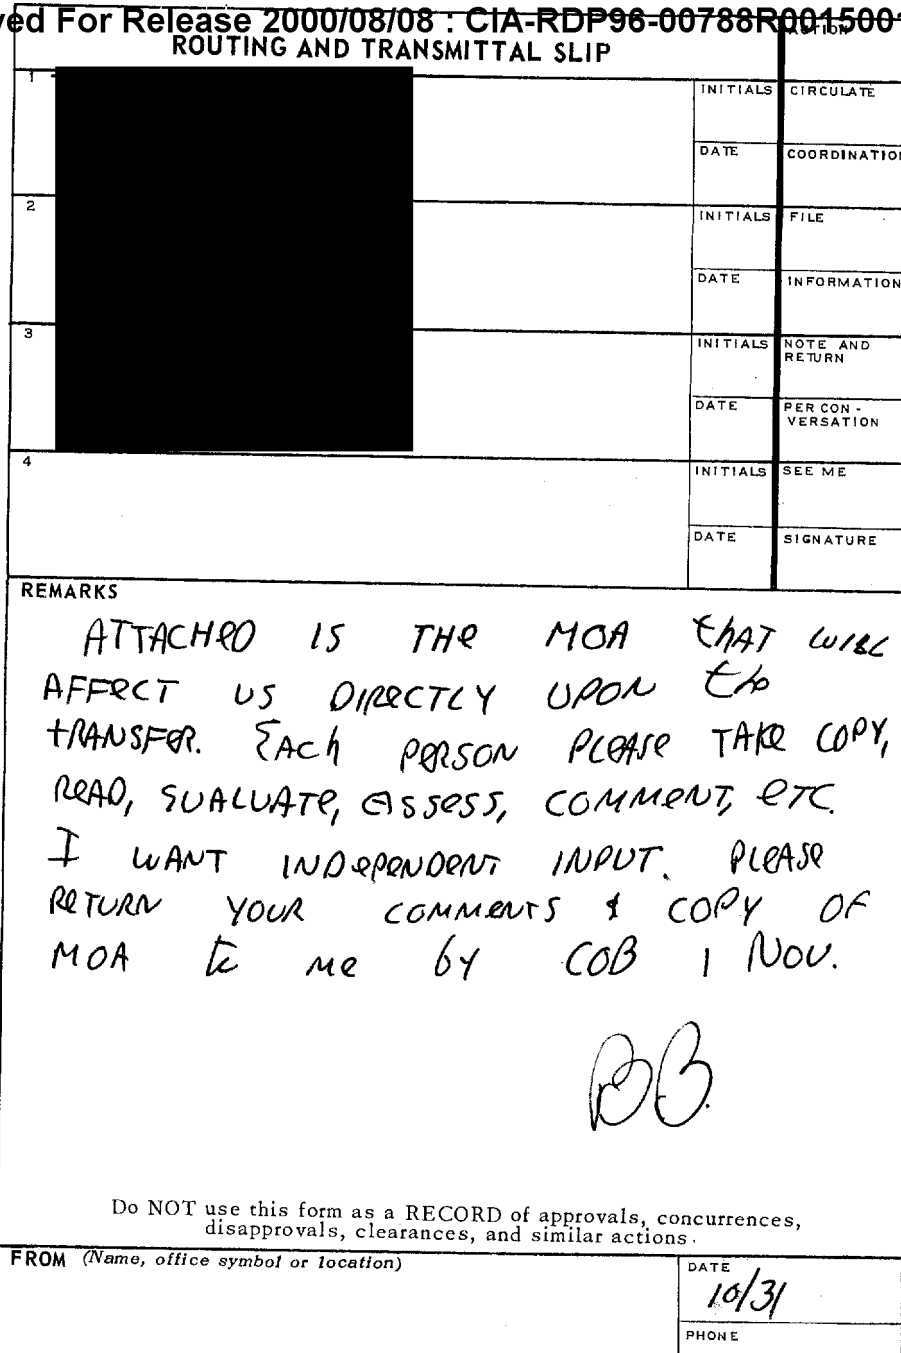 ved For Release 2000/08/08 : CIA-RDP96-00788R001500
ROUTING AND TRANSMITTAL SLIP
ACTION
1
INITIALS CIRCULATE
DATE COORDINATIO
2
INITIALS FILE
DATE INFORMATION
3
INITIALS NOTE AND RETURN
DATE PER CON-VERSATION
4
INITIALS SEE ME
DATE SIGNATURE
REMARKS
ATTACHED IS THE MOA THAT WILL
AFFECT US DIRECTLY UPON the
TRANSFER. EACH PERSON PLEASE TAKE COPY,
READ, EVALUATE, ASSESS, COMMENT, ETC.
I WANT INDEPENDENT INPUT. PLEASE
RETURN YOUR COMMENTS & COPY OF
MOA to me by COB 1 NOV.
BB.
Do NOT use this form as a RECORD of approvals, concurrences,
disapprovals, clearances, and similar actions.
FROM (Name, office symbol or location)
DATE
10/31
PHONE